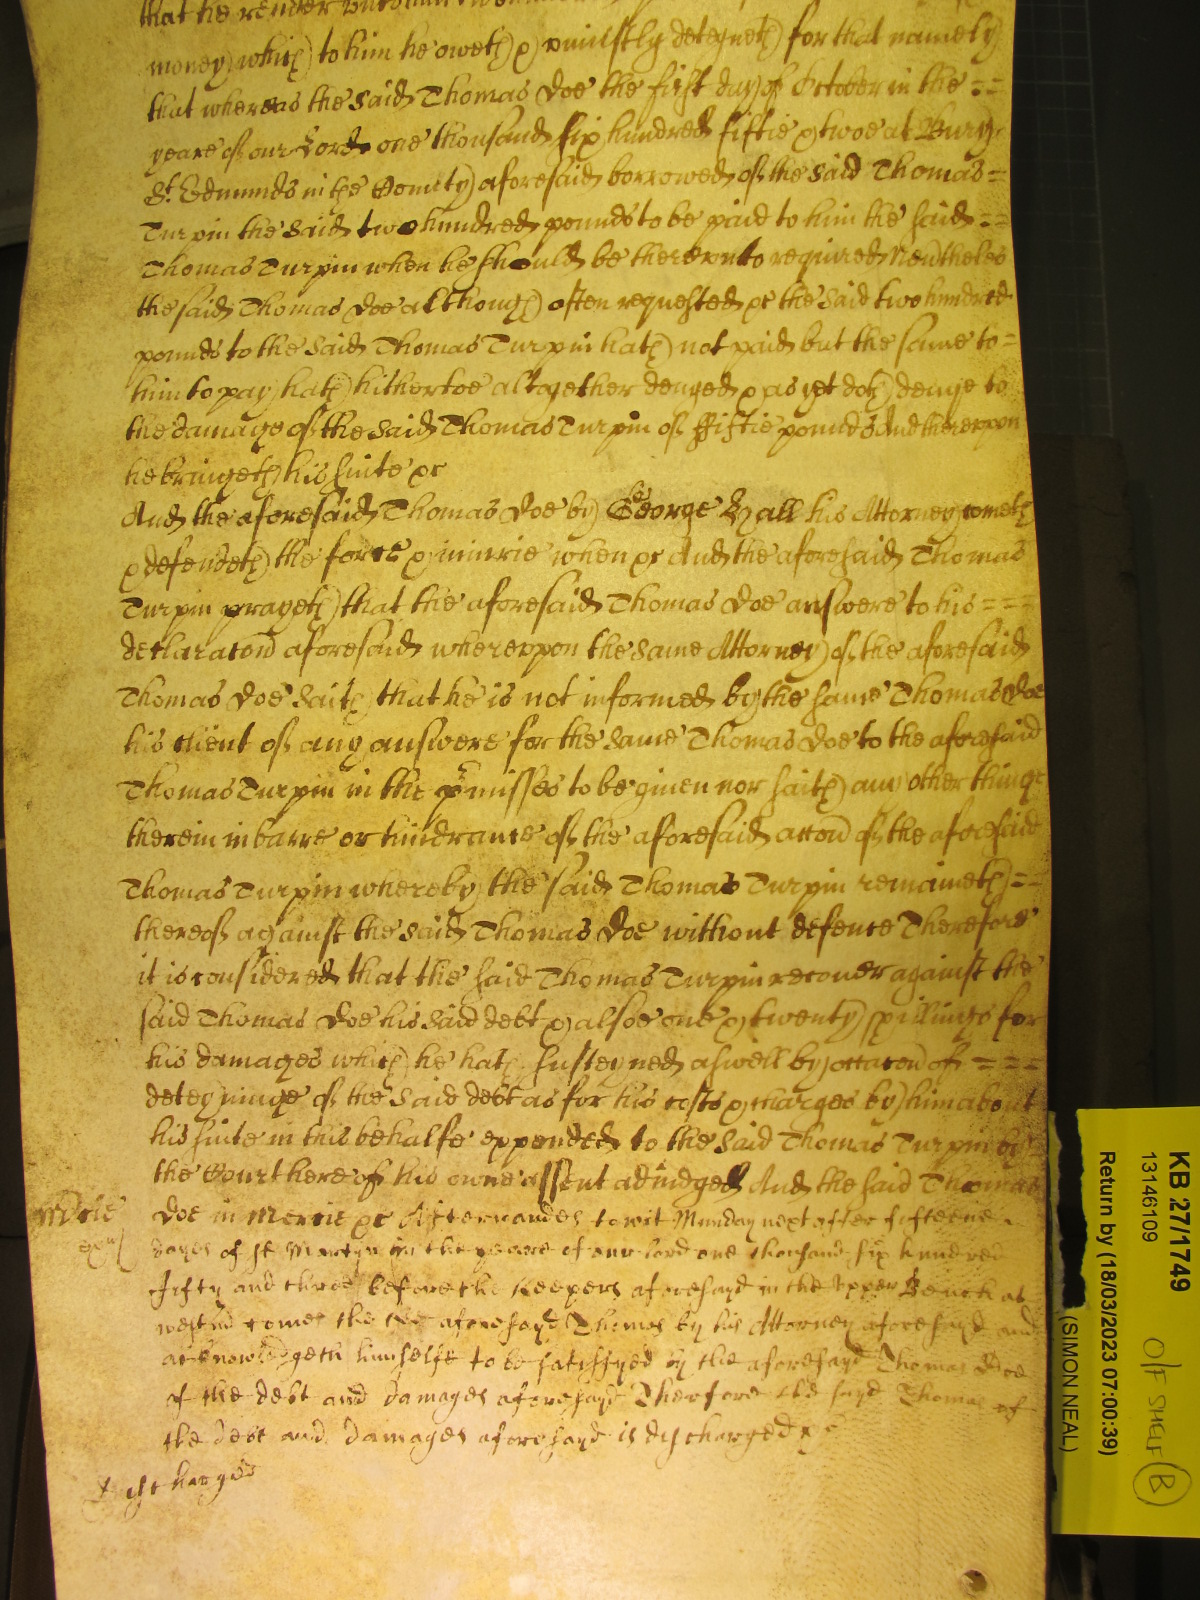 that he render
money which to him he oweth & uniustly deteyneth for that namely
that whereas the said Thomas Doe the first day of October in the ==
yeare of our Lord one thousand six hundred fiftie & twoe at Bury
St Edmunds in the County aforesaid borrowed of the said Thomas =
Turpin the said two hundred pounds to be paid to him the said ==
Thomas Turpin when he should be thereunto required Neutheles
the said Thomas Doe although often requested &c the said two hundred
pounds to the said Thomas Turpin hath not paid but the same to =
him to pay hath hithertoe altogether denyed & as yet doth denye to
the damage of the said Thomas Turpin of ffiftie pounds And thereupon
he bringeth his suite &c
And the aforesaid Thomas Doe by George Hall his Attorney cometh
& defendeth the force & iniurie when &c And the aforesaid Thomas
Turpin prayeth that the aforesaid Thomas Doe answere to his ===
declaracon aforesaid whereupon the same Attorney of the aforesaid
Thomas Doe saith that he is not informed by the same Thomas Doe
his client of any answere for the same Thomas Doe to the aforesaid
Thomas Turpin in the pmisses to be giuen nor saith any other thinge
therein in barre or hindrance of the aforesaid accon of the aforesaid
Thomas Turpin whereby the said Thomas Turpin remaineth ==
thereof against the said Thomas Doe without defence Therefore
it is considered that the said Thomas Turpin recouer against the
said Thomas Doe his said debt & alsoe one & twenty shillings for
his damages which he hath susteyned aswell by occacon of ===
deteyninge of the said debt as for his costs & charges by him about
his suite in this behalfe expended to the said Thomas Turpin by
the Court here of his owne assent adiudged And the said Thomas
Mercie
Doe in Mercie &c Afterwardes to wit Munday next after fifteene
dayes of St Martyn in the yeare of our lord one thousand six hundred
fifty and three before the Keepers aforesayd in the Upper Bench at
westm comes the aforesayd Thomas by his Attorney aforesayd and
acknowledgeth himselfe to be satisfyed by the aforesayd Thomas Doe
of the debt and damages aforesayd Therefore the sayd Thomas of
the debt and damages aforesayd is discharged &c
KB 27/1749
13146109
Return by (18/03/2023 07:00:39)
(SIMON NEAL)
O/F SHELF B